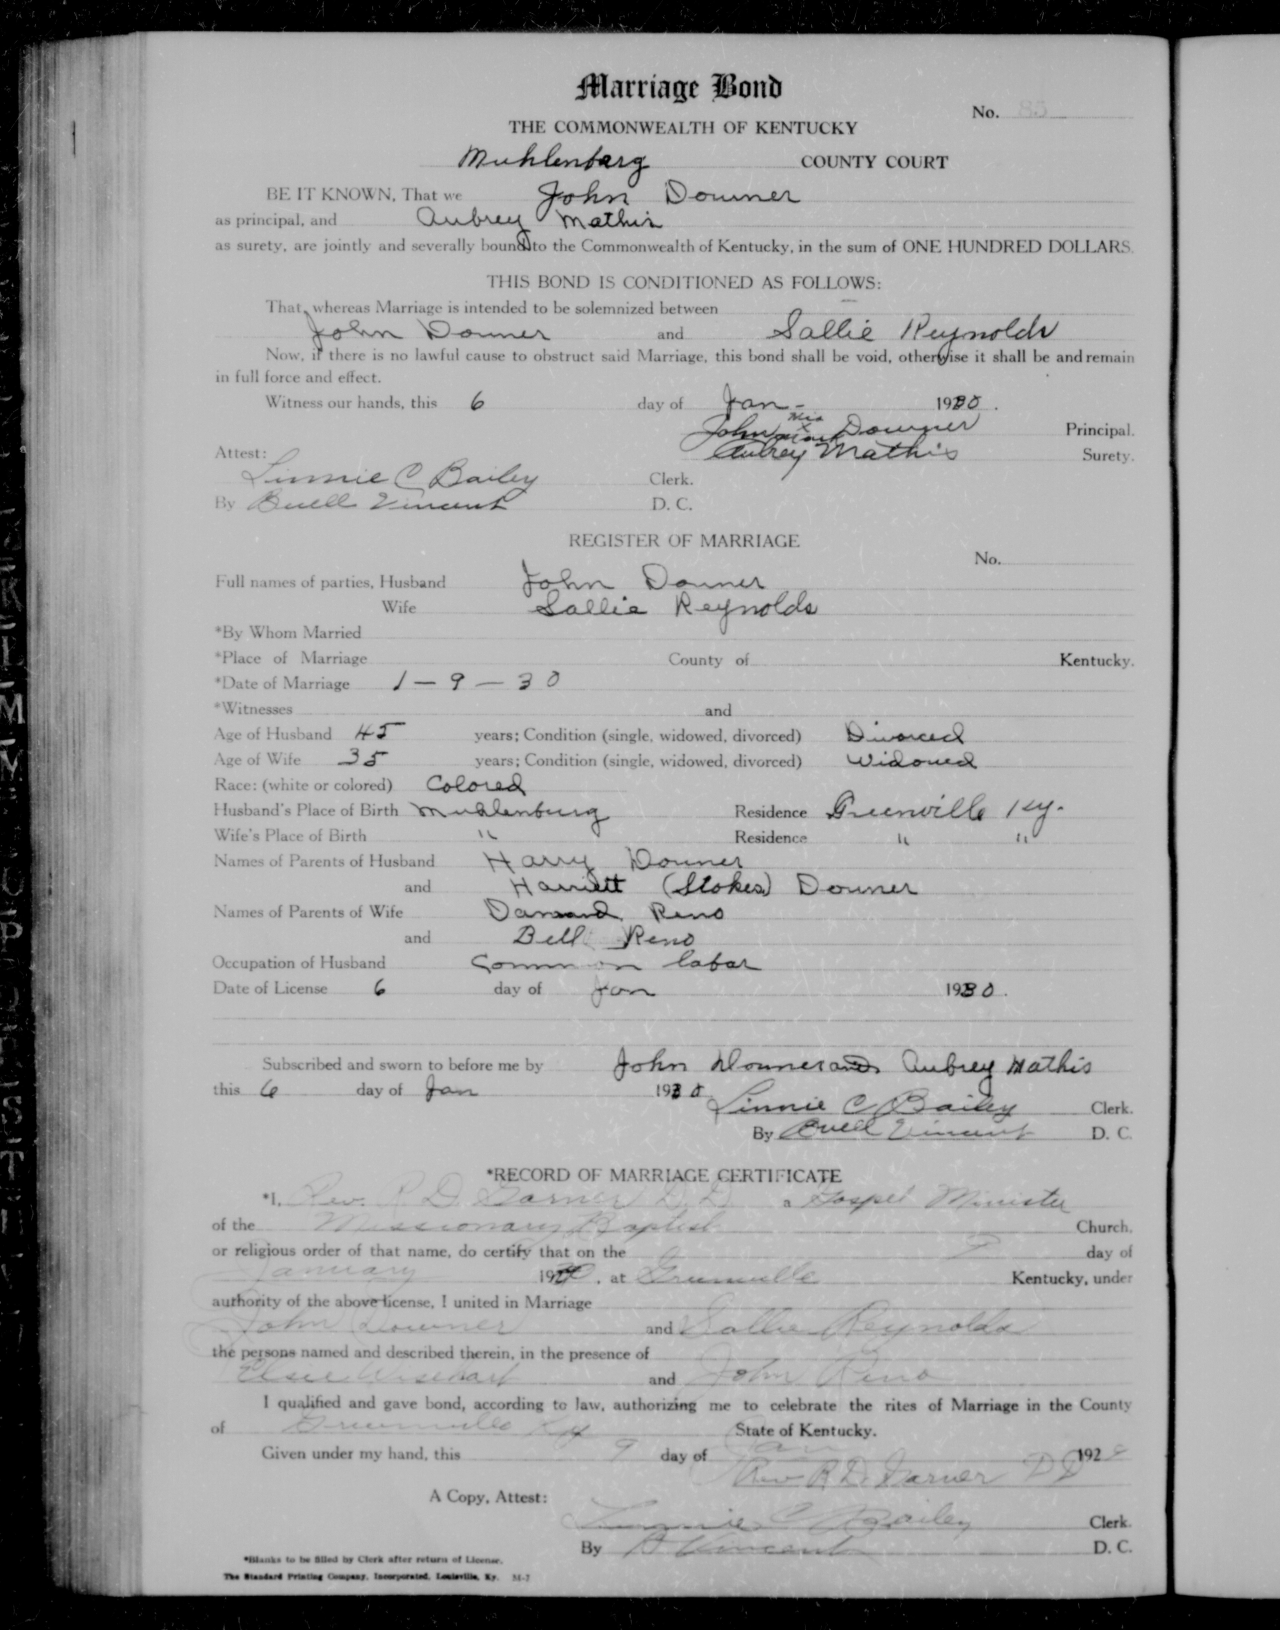 Marriage Bond
No. 85
THE COMMONWEALTH OF KENTUCKY
Muhlenberg COUNTY COURT
BE IT KNOWN, That we John Downer
as principal, and Aubrey Mathis
as surety, are jointly and severally bound to the Commonwealth of Kentucky, in the sum of ONE HUNDRED DOLLARS.
THIS BOND IS CONDITIONED AS FOLLOWS:
That, whereas Marriage is intended to be solemnized between
John Downer and Sallie Reynolds
Now, if there is no lawful cause to obstruct said Marriage, this bond shall be void, otherwise it shall be and remain
in full force and effect.
Witness our hands, this 6 day of Jan - 1930.
John his x mark Downer Principal.
Attest: Aubrey Mathis Surety.
Linnie C Bailey Clerk.
By Buell Vincent D. C.
REGISTER OF MARRIAGE
No.
Full names of parties, Husband John Downer
Wife Sallie Reynolds
*By Whom Married
*Place of Marriage County of Kentucky.
*Date of Marriage 1 - 9 - 30
*Witnesses and
Age of Husband 45 years; Condition (single, widowed, divorced) Divorced
Age of Wife 35 years; Condition (single, widowed, divorced) Widowed
Race: (white or colored) Colored
Husband's Place of Birth Muhlenburg Residence Greenville Ky.
Wife's Place of Birth " Residence " "
Names of Parents of Husband Harry Downer
and Harriett (Stokes) Downer
Names of Parents of Wife Reno
and Bell Reno
Occupation of Husband Common labor
Date of License 6 day of Jan 1930.
Subscribed and sworn to before me by John Downer and Aubrey Mathis
this 6 day of Jan 1930
Linnie C Bailey Clerk.
By Buell Vincent D. C.
*RECORD OF MARRIAGE CERTIFICATE
*I, Rev. R D Garner D D a Gospel Minister
of the Missionary Baptist Church.
or religious order of that name, do certify that on the 9 day of
January 1930, at Greenville Kentucky, under
authority of the above license, I united in Marriage
John Downer and Sallie Reynolds
the persons named and described therein, in the presence of
Elsie and John Reno
I qualified and gave bond, according to law, authorizing me to celebrate the rites of Marriage in the County
of Greenville Ky State of Kentucky.
Given under my hand, this 9 day of Jan 192
Rev R D. Garner D D
A Copy, Attest:
Linnie C Bailey Clerk.
By B Vincent D. C.
*Blanks to be filled by Clerk after return of License.
The Standard Printing Company, Incorporated, Louisville, Ky. 34-2